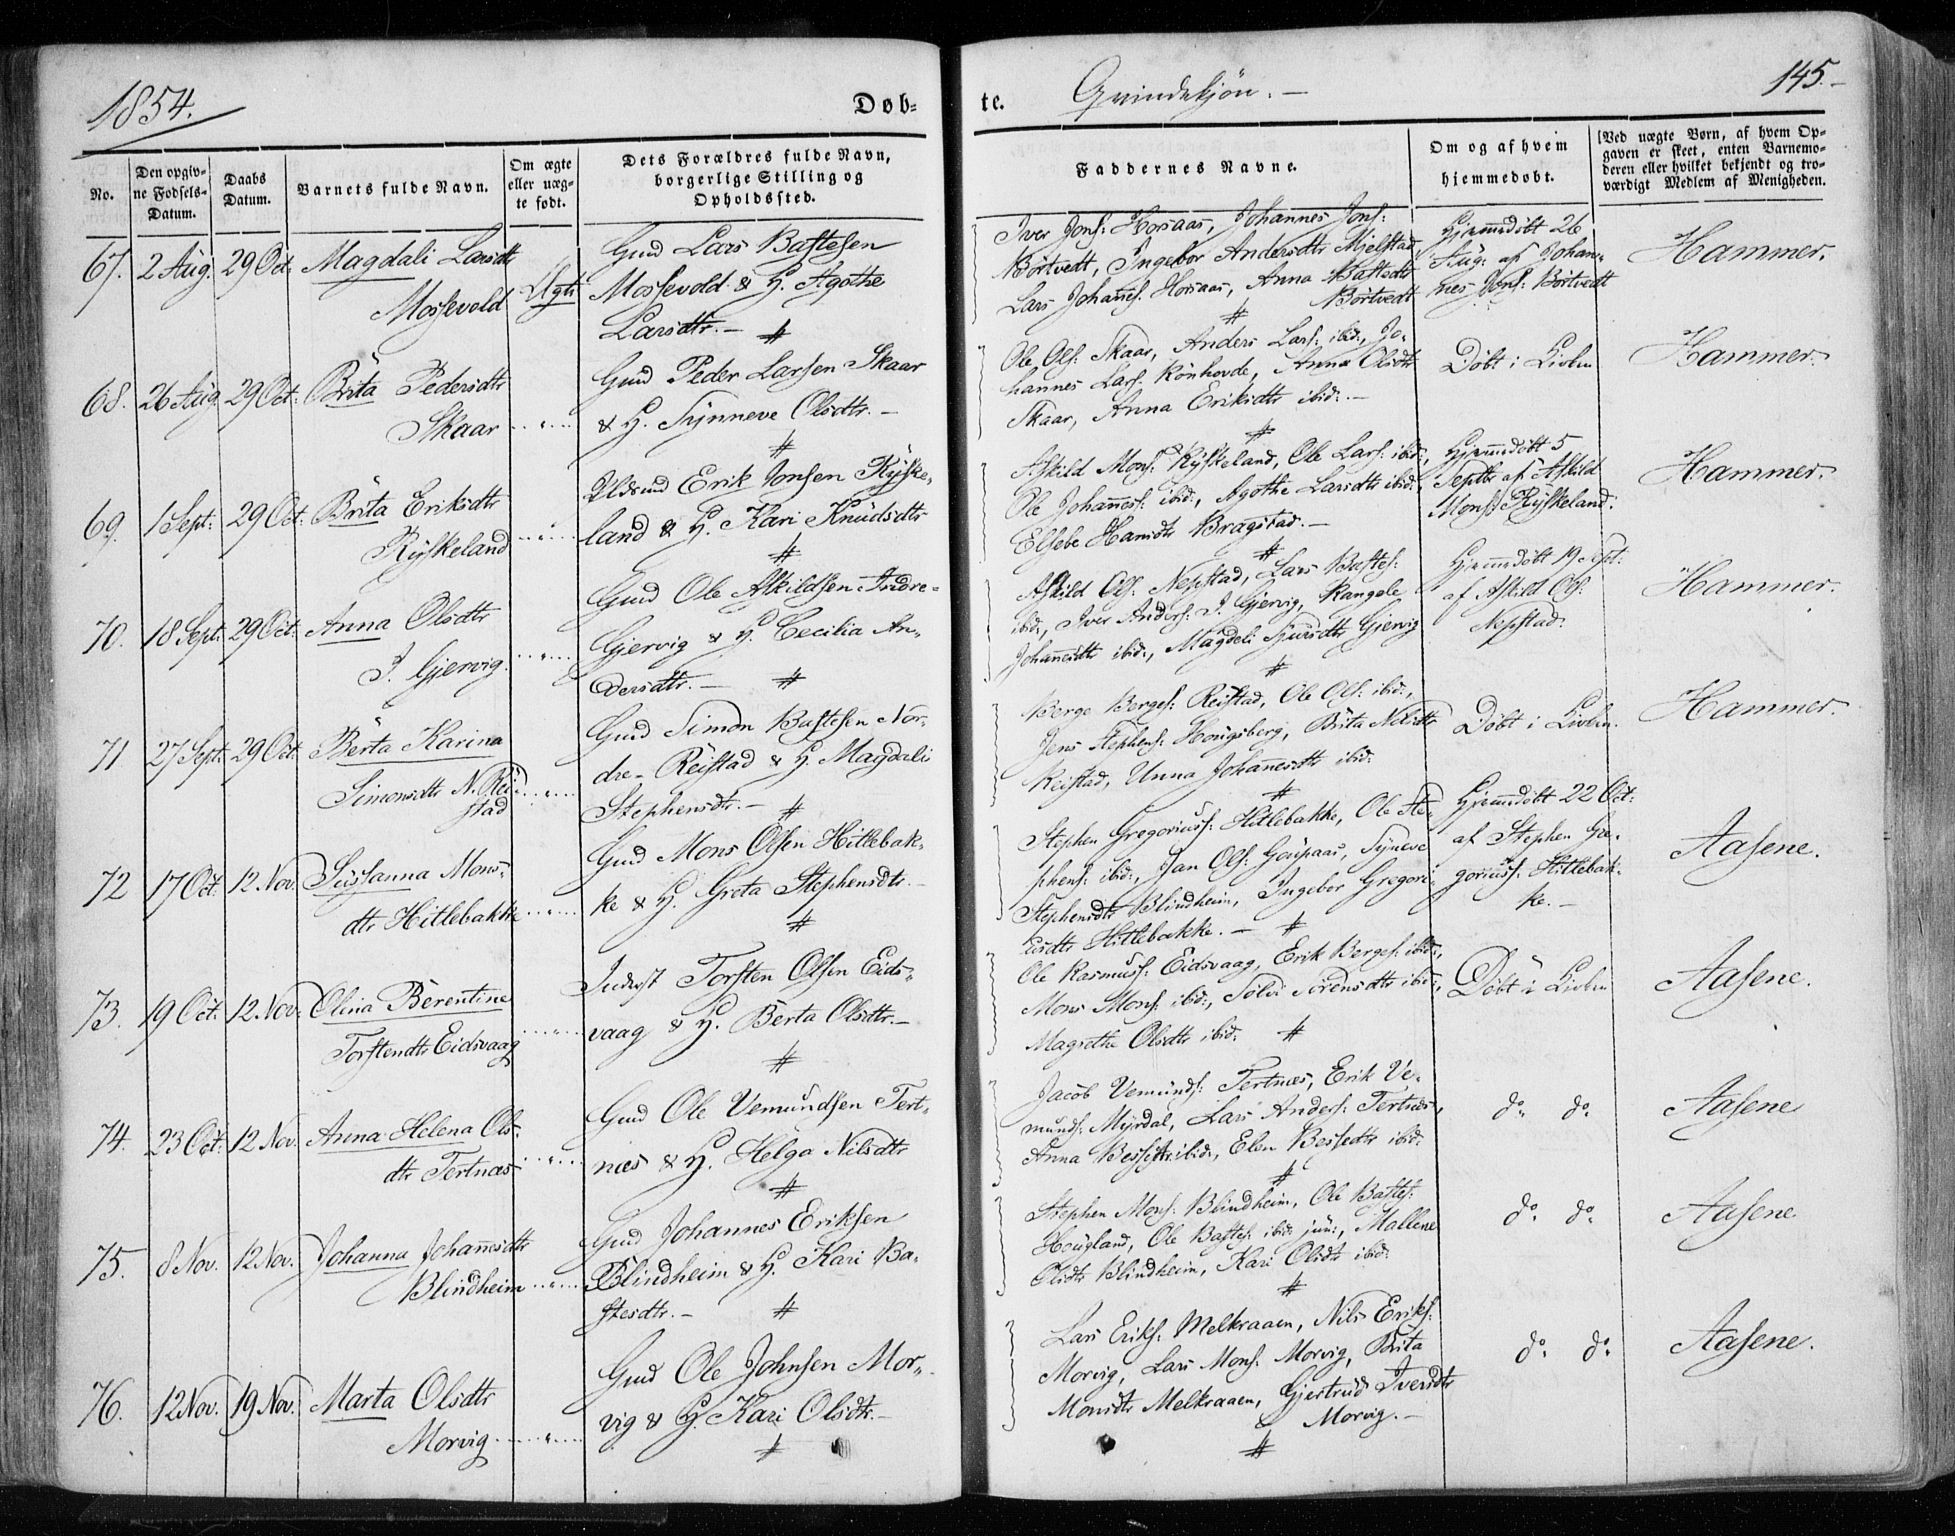 1854.
Døb-
te.
Qvindekjøn. —
145. –
No.
Den opgiv-
ne Fødsels-
Datum.
Daabs
Datum.
Barnets fulde Navn.
Om ægte
eller uæg-
te født.
Dets Forældres fulde Navn,
borgerlige Stilling og
Opholdssted.
Faddernes Navne.
Om og af hvem
hjemmedøbt.
[Ved uægte Børn, af hvem Op-
gaven er skeet, enten Barnemo-
deren eller hvilket bekjendt og tro-
værdigt Medlem af Menigheden.
67. 2 Aug. 29 Oct. Magdali Larsdtr
Mossevold
Ægte
Gmd Lars Bastesen
Mossevold & H. Agothe
Larsdtr. —
Iver Jons: Horsaas, Johannes Jons:
Börtvedt, Ingebor Andersdtr Mjelstad
Lars Johannes: Horsaas, Anna Bastedtr
Börtvedt
Hjemmedöbt 26
Aug: af Johan-
nes Jons: Börtvedt
Hammer.
68. 26 Aug. 29 Oct: Brita Pedersdtr
Skaar
Gmd Peder Larsen Skaar
& H. Synneve Olsdtr. —
Ole Ols: Skaar, Anders Lars: ibid:, Jo-
hannes Lars: Rönhovde, Anna Olsdtr
Skaar, Anna Eriksdtr ibid: —
Döbt i Kirken
Hammer.
69. 1 Sept: 29 Oct: Brita Eriksdtr
Ryskeland
Erik Jonsen Ryske-
land & H. Kari Knudsdtr
Askild Mons: Ryskeland, Ole Lars: ibid:,
Ole Johannes: ibid:, Agothe Larsdtr ibid:,
Elsebe Hansdtr Bragstad. —
Hjemmedöbt 5
Septbr af Askild
Mons: Ryskeland.
Hammer.
70. 18 Sept: 29 Oct: Anna Olsdtr
I. Gjervig.
Gmd Ole Askildsen Indre-
Gjervig & H. Cecilia An-
dersdtr. —
Askild Ols: Nepstad, Lars Bastes:
ibid:, Iver Anders: I. Gjervig, Rangele
Johannesdtr ibid:, Magdeli Sjursdtr Gjervig
Hjemmedöbt 19 Sept:
af Askild Ols:
Nepstad.
Hammer.
71 27 Sept: 29 Oct. Berta Karina
Simonsdtr N. Rei-
stad
Gmd Simon Bastesen Nor-
dre-Reistad & H. Magdali
Stephensdtr. —
Berge Berges: Reistad, Ole Ols: ibid:,
Jens Stephens: Hougsberg, Brita Nilsdtr
Reistad, Unna Johannesdtr ibid:
Döbt i Kirken.
Hammer.
72 17 Oct. 12 Nov. Sussanna Mons-
dtr Hitlebakke
Gmd Mons Olsen Hitlebak-
ke & H. Greta Stephensdtr. —
Stephen Gregoriuss: Hitlebakke, Ole Ste-
phens: ibid:, Jan Ols: Gaupaas, Syneve
Stephensdtr Blindheim, Ingebor Gregori-
usdtr Hitlebakke. —
Hjemmedöbt 22 Oct:
af Stephen Gre-
goriuss: Hitlebak-
ke. —
Aasene.
73. 19 Oct. 12 Nov. Olina Berentine
Torstendtr Eidsvaag
Inderst Torsten Olsen Eids-
vaag & H. Berta Olsdtr. —
Ole Rasmuss: Eidsvaag, Erik Berges: ibid:,
Mons Mons: ibid:, Sölvi Sörensdtr ibid:,
Magrethe Olsdtr ibid:
Döbt i Kirken
Aasene.
74. 23 Oct: 12 Nov. Anna Helena Ols-
dtr Tertnæs
Gmd Ole Vemundsen Tert-
næs & H. Helga Nilsdtr
Jacob Vemunds: Tertnæs, Erik Ve-
munds: Myrdal, Lars Anders: Tertnæs,
Anna ibid:, Elen ibid:
do. do.
Aasene
75. 8 Nov. 12 Nov. Johanna Johannesdtr
Blindheim
Gmd Johannes Eriksen
Blindheim & H. Kari Ba-
stesdtr. —
Stephen Mons: Blindheim, Ole Bastes:
Hougland, Ole Bastes: ibid: jun:, Mallene
Olsdtr Blindheim, Kari Olsdtr ibid:
do. do.
Aasene
76. 12 Nov. 19 Nov. Marta Olsdtr
Morvig
Gmd Ole Johnsen Mor-
vig & H. Kari Olsdtr. —
Lars Eriks: Melkraaen, Nils Eriks:
Morvig, Lars Mons: Morvig, Brita
Monsdtr Melkraaen, Gjertrud Iversdtr
Morvig. —
do. do.
Aasene.